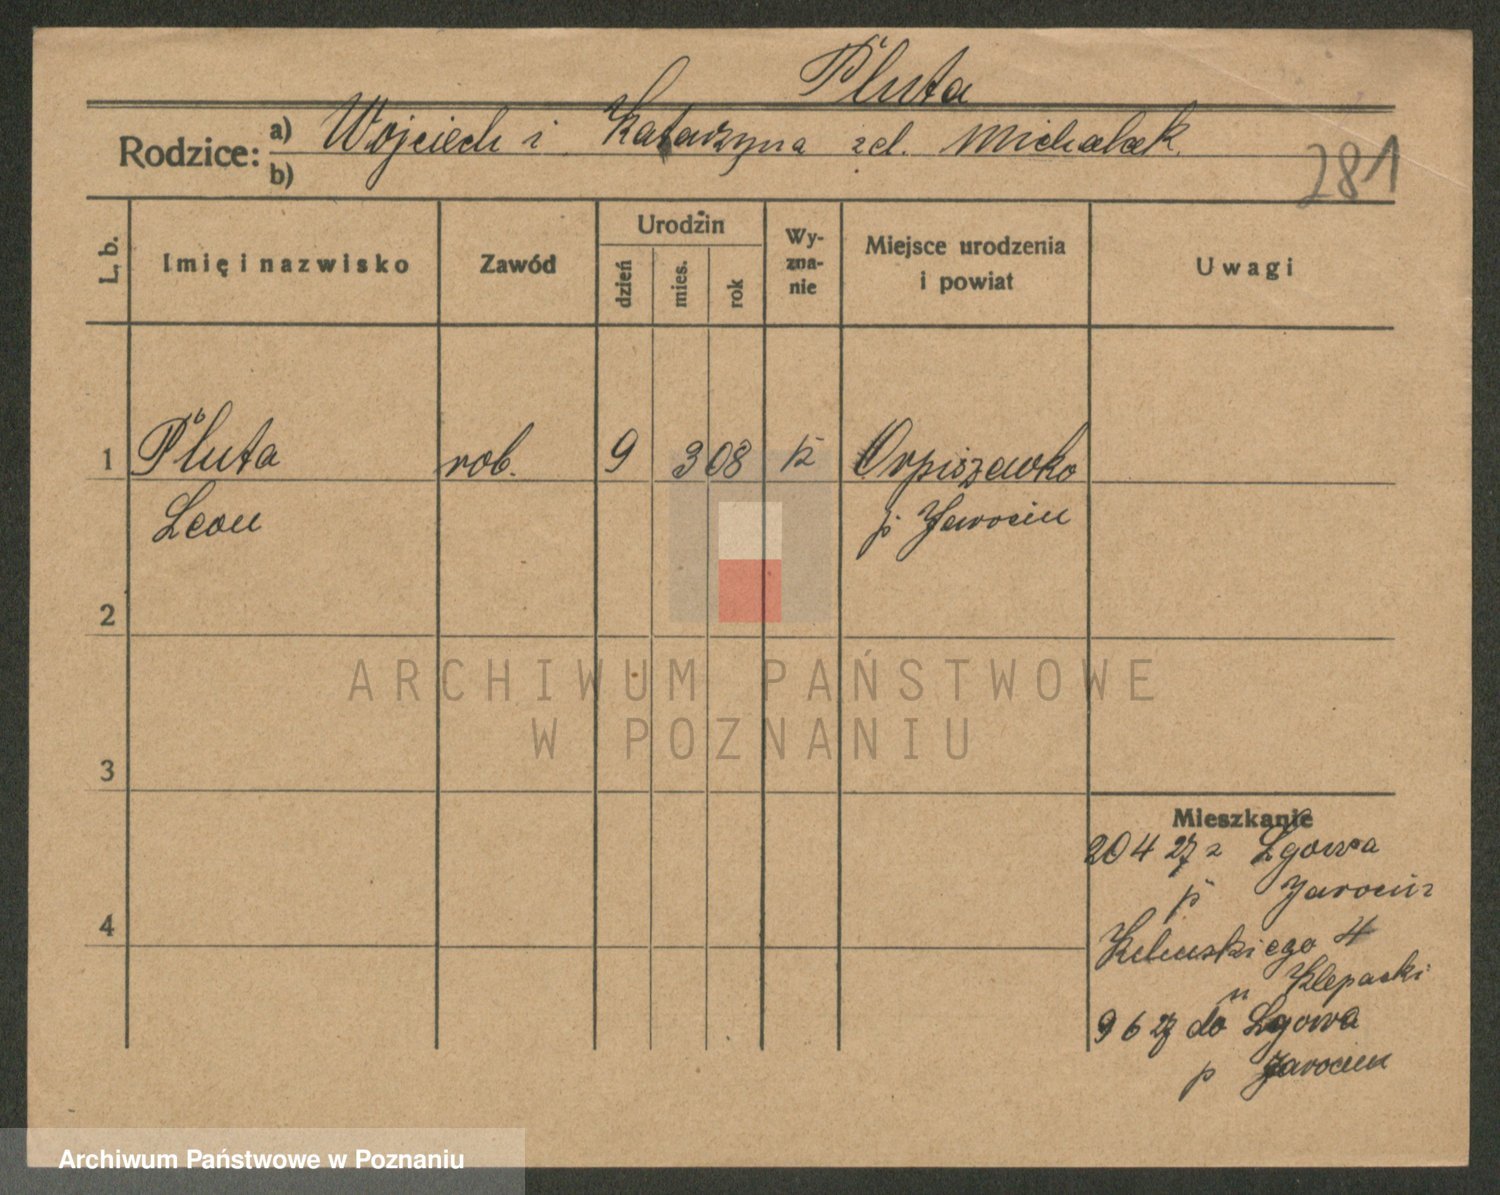 Pluta
Rodzice: a) Wojciech i Katarzyna zd. Michalak
b)
281
L. b.
Imię i nazwisko
Zawód
Urodzin
dzień
mies.
rok
Wy-
zna-
nie
Miejsce urodzenia
i powiat
Uwagi
1 Pluta rob. 9 3 08 k Orpiszewko
Leon p Jarocin
2
3
4
Mieszkanie
20 4 27 z Lgowa
p Jarocin
4
u Klepacki
9 6 27 do Lgowa
p Jarocin
ARCHIWUM PAŃSTWOWE
W POZNANIU
Archiwum Państwowe w Poznaniu